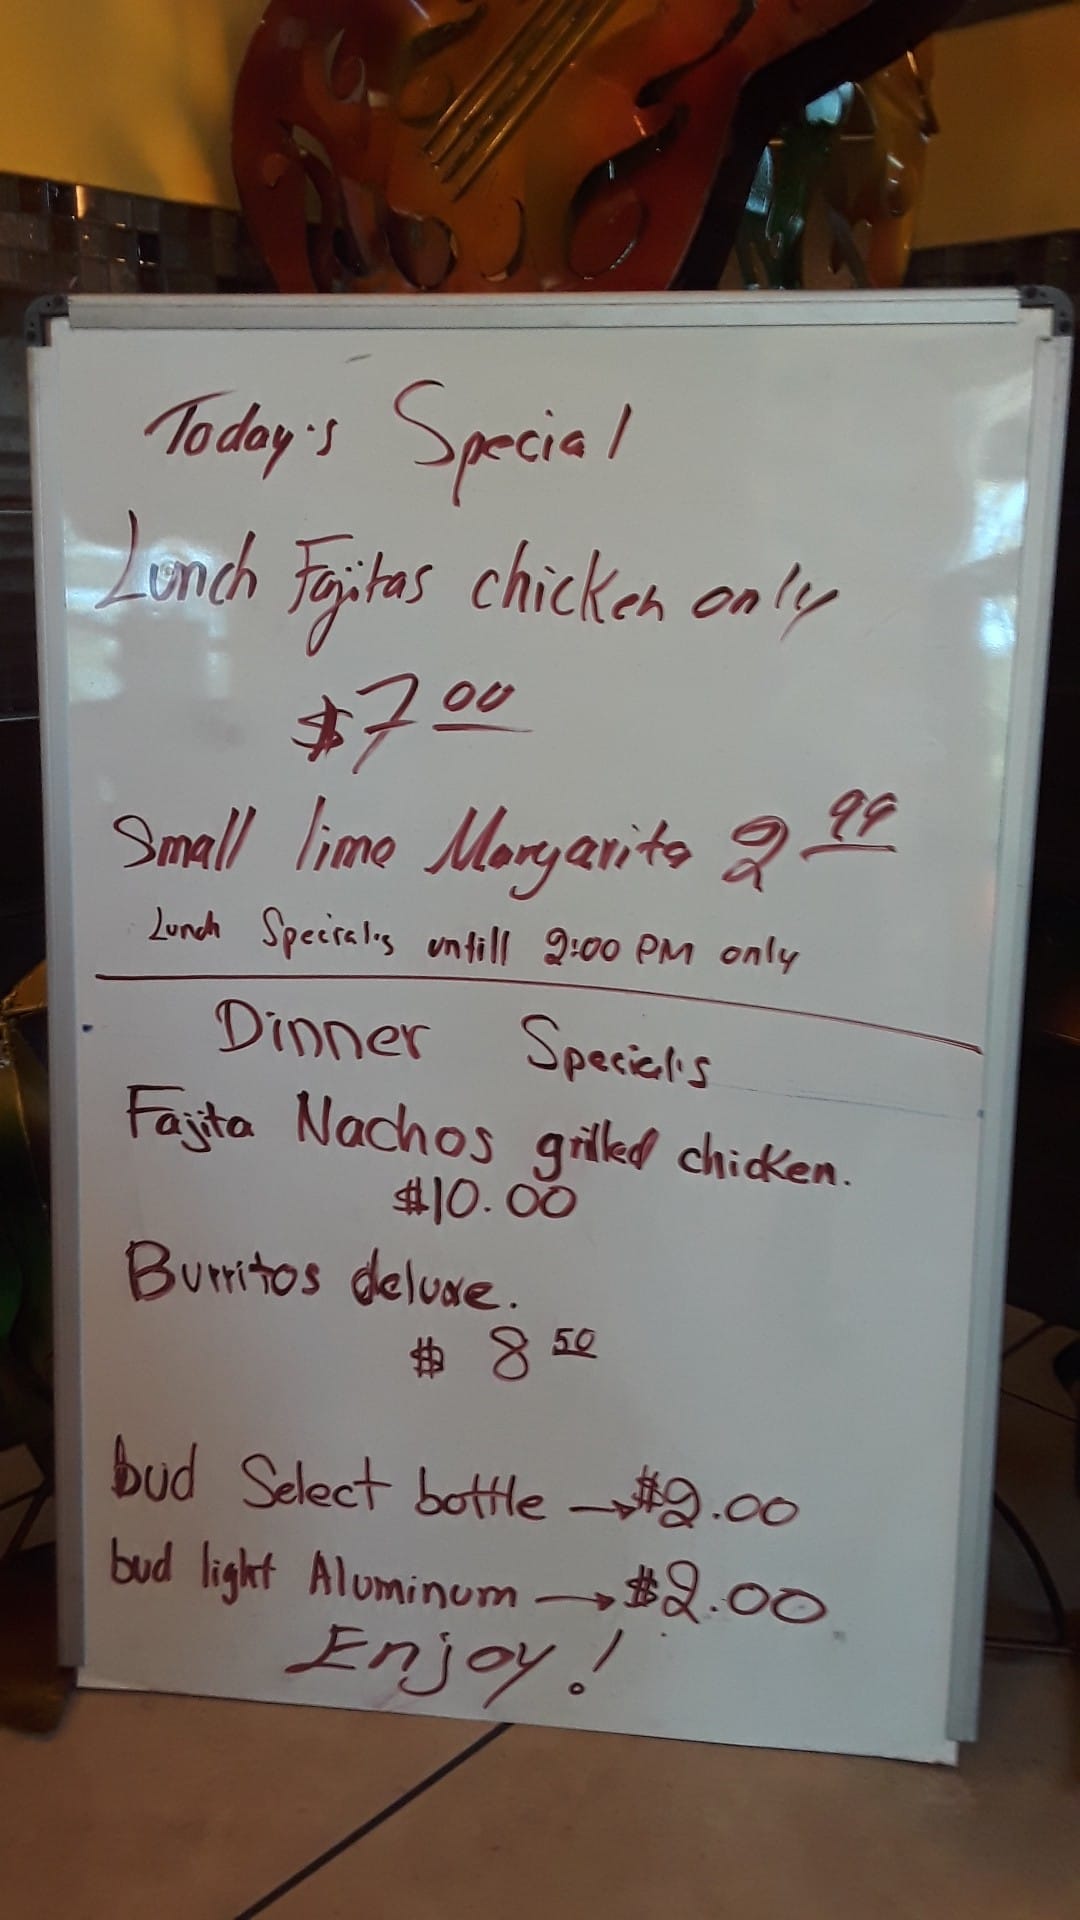 Today's Special
Lunch Fajitas chicken only
$7 00
Small lime Margarita 2 99
Lunch Special's untill 2:00 PM only
Dinner Special's
Fajita Nachos grilled chicken.
$10.00
Burritos deluxe.
$ 8 50
bud Select bottle →$2.00
bud light Aluminum →$2.00
Enjoy!